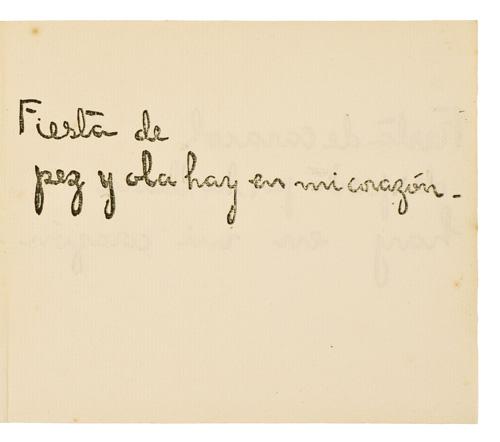 Fiesta de
pez y ola hay en mi corazón -